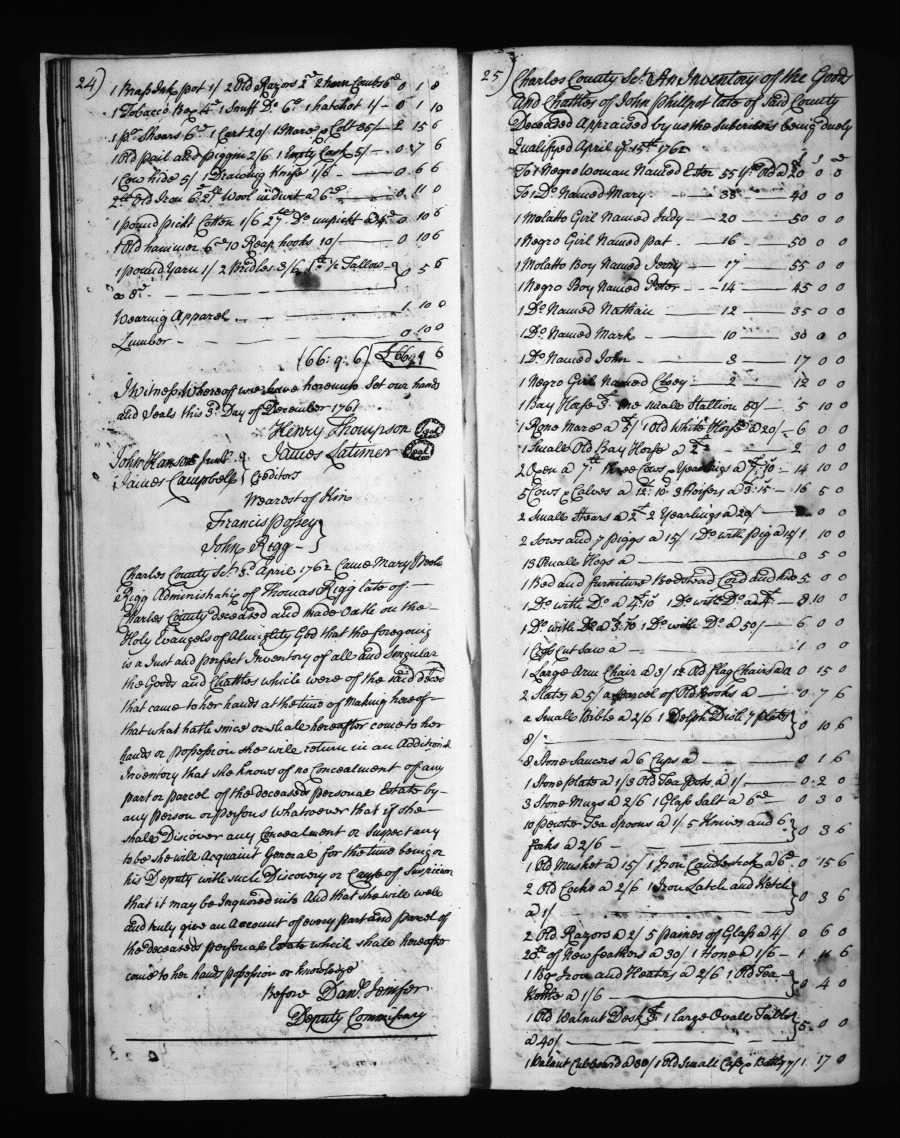 24)
1 Brass Ink pot 1/ 2 Old Razors 2d 2 horn Combs 6d 0 1 8
1 Tobacco Box 4d 1 Snuff Do 6d 1 hatchet 1/ - 0 1 10
1 pr Shears 6d 1 Cart 20/ 1 Mare & Colt 35/ - 2 15 6
1 Old pail and Piggin 2/6 1 Empty Cask 5/ - 0 7 6
1 Cow hide 5/ 1 Drawing Knife 1/6 - 0 6 6
Old Iron 6d Wool in durt a 6d - 0 11 0
1 pound pickt Cotton 1/6 27 Do unpickt a 4d 0 10 6
1 Old hammer 6d 10 Reap hooks 10/ - 0 10 6
1 pound Yarn 1/ 2 Bridles 3/6 ½ Tallow } 0 5 6
a 8d - -
Wearing Apparel - 1 10 0
Lumber - 0 10 0
(66: 9: 6) £66 9 6
I Witness Whereof we have hereunto Set our hands
and Seals this 3d Day of December 1761
Henry Thompson (Seal)
James Latimer (Seal)
John Hanson Junr }
James Campbell } Creditors
Nearest of Kin
Francis Posey }
John Rigg - }
Charles County Sct 5 April 1762 Came Mary
Rigg Administratrix of Thomas Rigg late of -
Charles County deceased and made Oath on the -
Holy Evangels of Almighty God that the foregoing
is a Just and perfect Inventory of all and Singular
the Goods and Chattles which were of the said deced
that came to her hands at the time of Making hereof -
that what hath since or shall hereafter come to her
hands or possession she will return in an Additional
Inventory that she knows of no Concealment of any
part or parcel of the deceaseds personal Estate by -
any person or persons Whatsoever that if she -
shall Discover any Concealment or Suspect any
to be she will Acquaint General for the time being or
his Deputy with such Discovery or Cause of Suspicion
that it may be Inquired into And that she will well
and truly give an Account of every part and parcel of
the deceaseds personal Estate which shall hereafter
come to her hands possession or knowledge
Before Danl Jenifer
Deputy Commissary
25)
Charles County Sct An Inventory of the Goods
and Chattles of John Philpot late of said County
Deceased Appraised by us the Subcribers being duely
Qualifyed April ye 15th 1762
£ s d
To 1 Negro Woman Named Ester 55 Yrs Old a 20 0 0
To 1 Do Named Mary - 38 - 40 0 0
1 Molatto Girl Named Judy - 20 - 50 0 0
1 Negro Girl Named Pat - 16 - 50 0 0
1 Molatto Boy Named Jerry - 17 - 55 0 0
1 Negro Boy Named Peter - 14 - 45 0 0
1 Do Named Nathan - 12 - 35 0 0
1 Do Named Mark - 10 - 30 0 0
1 Do Named John - 3 - 17 0 0
1 Negro Girl Named Cloey - 2 - 12 0 0
1 Bay Horse £3 One small Stallion 50/ - 5 10 0
1 Rone Mare a £5/ 1 Old White Horse a 20/ - 6 0 0
1 Small Old Bay Horse a £2 - 2 0 0
2 Oxen a 7£ three Cows & Yearlings a £7:10 - 14 10 0
5 Cows & Calves a 12:10 3 Heifers a £3:15 - 16 5 0
2 Small Stears a 2£ 2 Yearlings a 20/ -
2 Sows and 7 Piggs a 15/ 1 Do with pig a 15/ 1 10 0
13 Small Hogs a - 3 5 0
1 Bed and furniture Bedstead Cord and hide 5 0 0
1 Do with Do a £4:10 1 Do with Do a £4 - 8 10 0
1 Do with Do a £3:10 1 Do with Do a 50/ - 6 0 0
1 Cross Cut Saw a - 1 0 0
1 Large Arm Chair a 3/ 12 Old Flag Chairs a 0 15 0
2 Slates a 5/ a parcel of Old Books a - 0 7 6
a Small Bible a 2/6 1 Delph Dish 7 plates } 0 10 6
8/ -
8 Stone Saucers a 6 Cups a - 0 1 6
1 Stone plate a 1/3 Old Tea Pots a 1/ - 0 2 0
3 Stone Mugs a 2/6 1 Glass Salt a 6d - 0 3 0
10 Pewter Tea Spoons a 1/ 5 Knives and 6 } 0 3 6
forks a 2/6 -
1 Old Musket a 15/ 1 Iron Candlestick a 6d 0 15 6
2 Old Locks a 2/6 1 Iron Latch and Ketch } 0 3 6
a 1/ -
2 Old Razors a 2/ 5 paines of Glass a 4/ 0 6 0
20lb of New feathers a 30/ 1 Hone a 1/6 - 1 11 6
1 Box Iron and Heaters a 2/6 1 Old Tea - } 0 4 0
Kettle a 1/6 -
1 Old Walnut Desk £3 1 large Ovale Table } 5 0 0
a 40/ -
1 Walnut Cubboard a 30/ 1 Old Small Case & Bottles 7/ 1 17 0